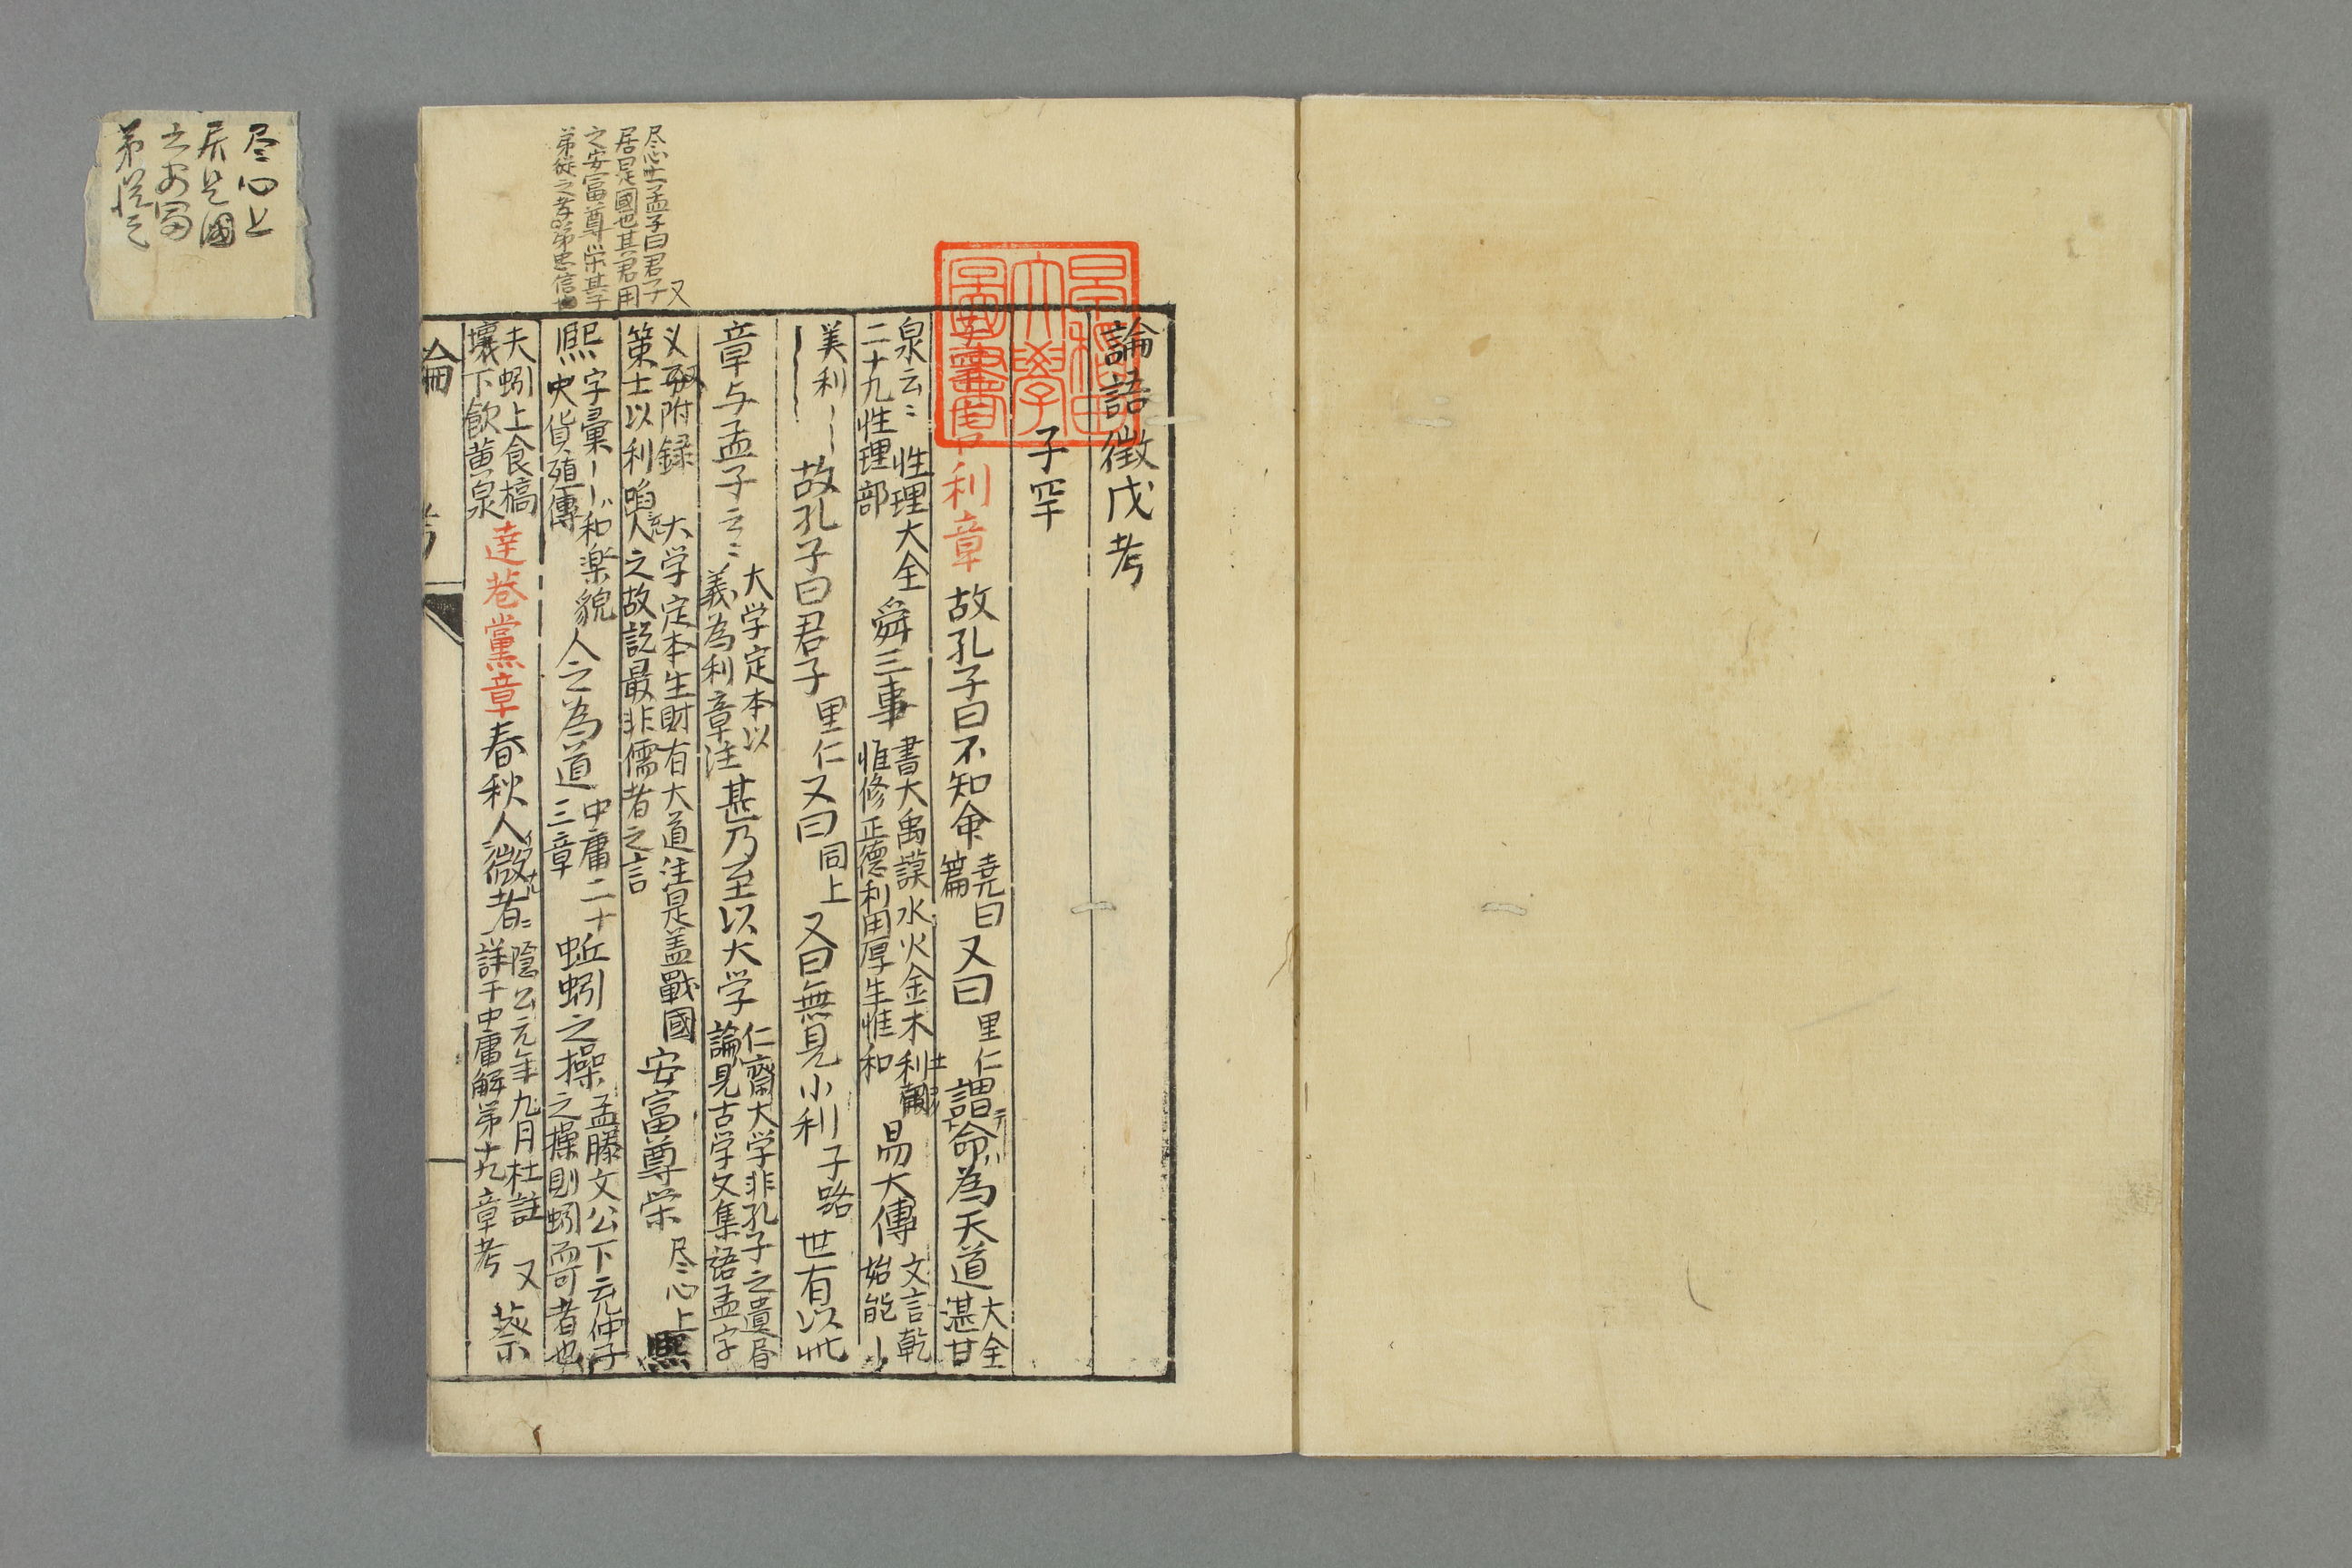 論語徴戊考
子罕
利章 故孔子曰不知命 堯曰篇 又曰 里仁 謂命為天道 大全湛甘
泉云〻 性理大全二十九性理部 舜三事 書大禹謨水火金木 惟修正德利用厚生惟和 利 易大傳 文言乾始能
美利 故孔子曰君子 里仁 又曰 同上 又曰無見小利 子路 世有以此
章与孟子云〻 大学定本以義為利章注 甚乃至以大学 仁齋大学非孔子之遺書論見古学文集語孟字
义附録 大学定本生財有大道注是盖戰國策士以利啗人之故説最非儒者之言 安富尊栄 尽心上 熙
熙 字彙 和楽貌 史貨殖傳 人之為道 中庸二十三章 蚯蚓之操 孟滕文公下云仲子之操則蚓而可者也
夫蚓上食槁壤下飲黄泉 達巷黨章 春秋人微者〻 隱公元年九月杜註 又詳于中庸解第十九章考 蔡
論
考
尽心上孟子曰君子
居是國也其君用
之安富尊栄其子
弟從之孝弟忠信
又
尽心上
居是國
之安富
弟從之
早稲田
大學
圖書